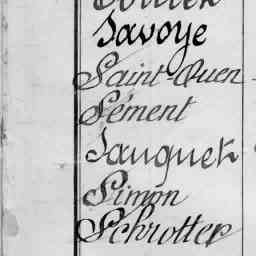 Savoye
Saint-Ouen
Sément
Sauquet
Simon
Schrotter